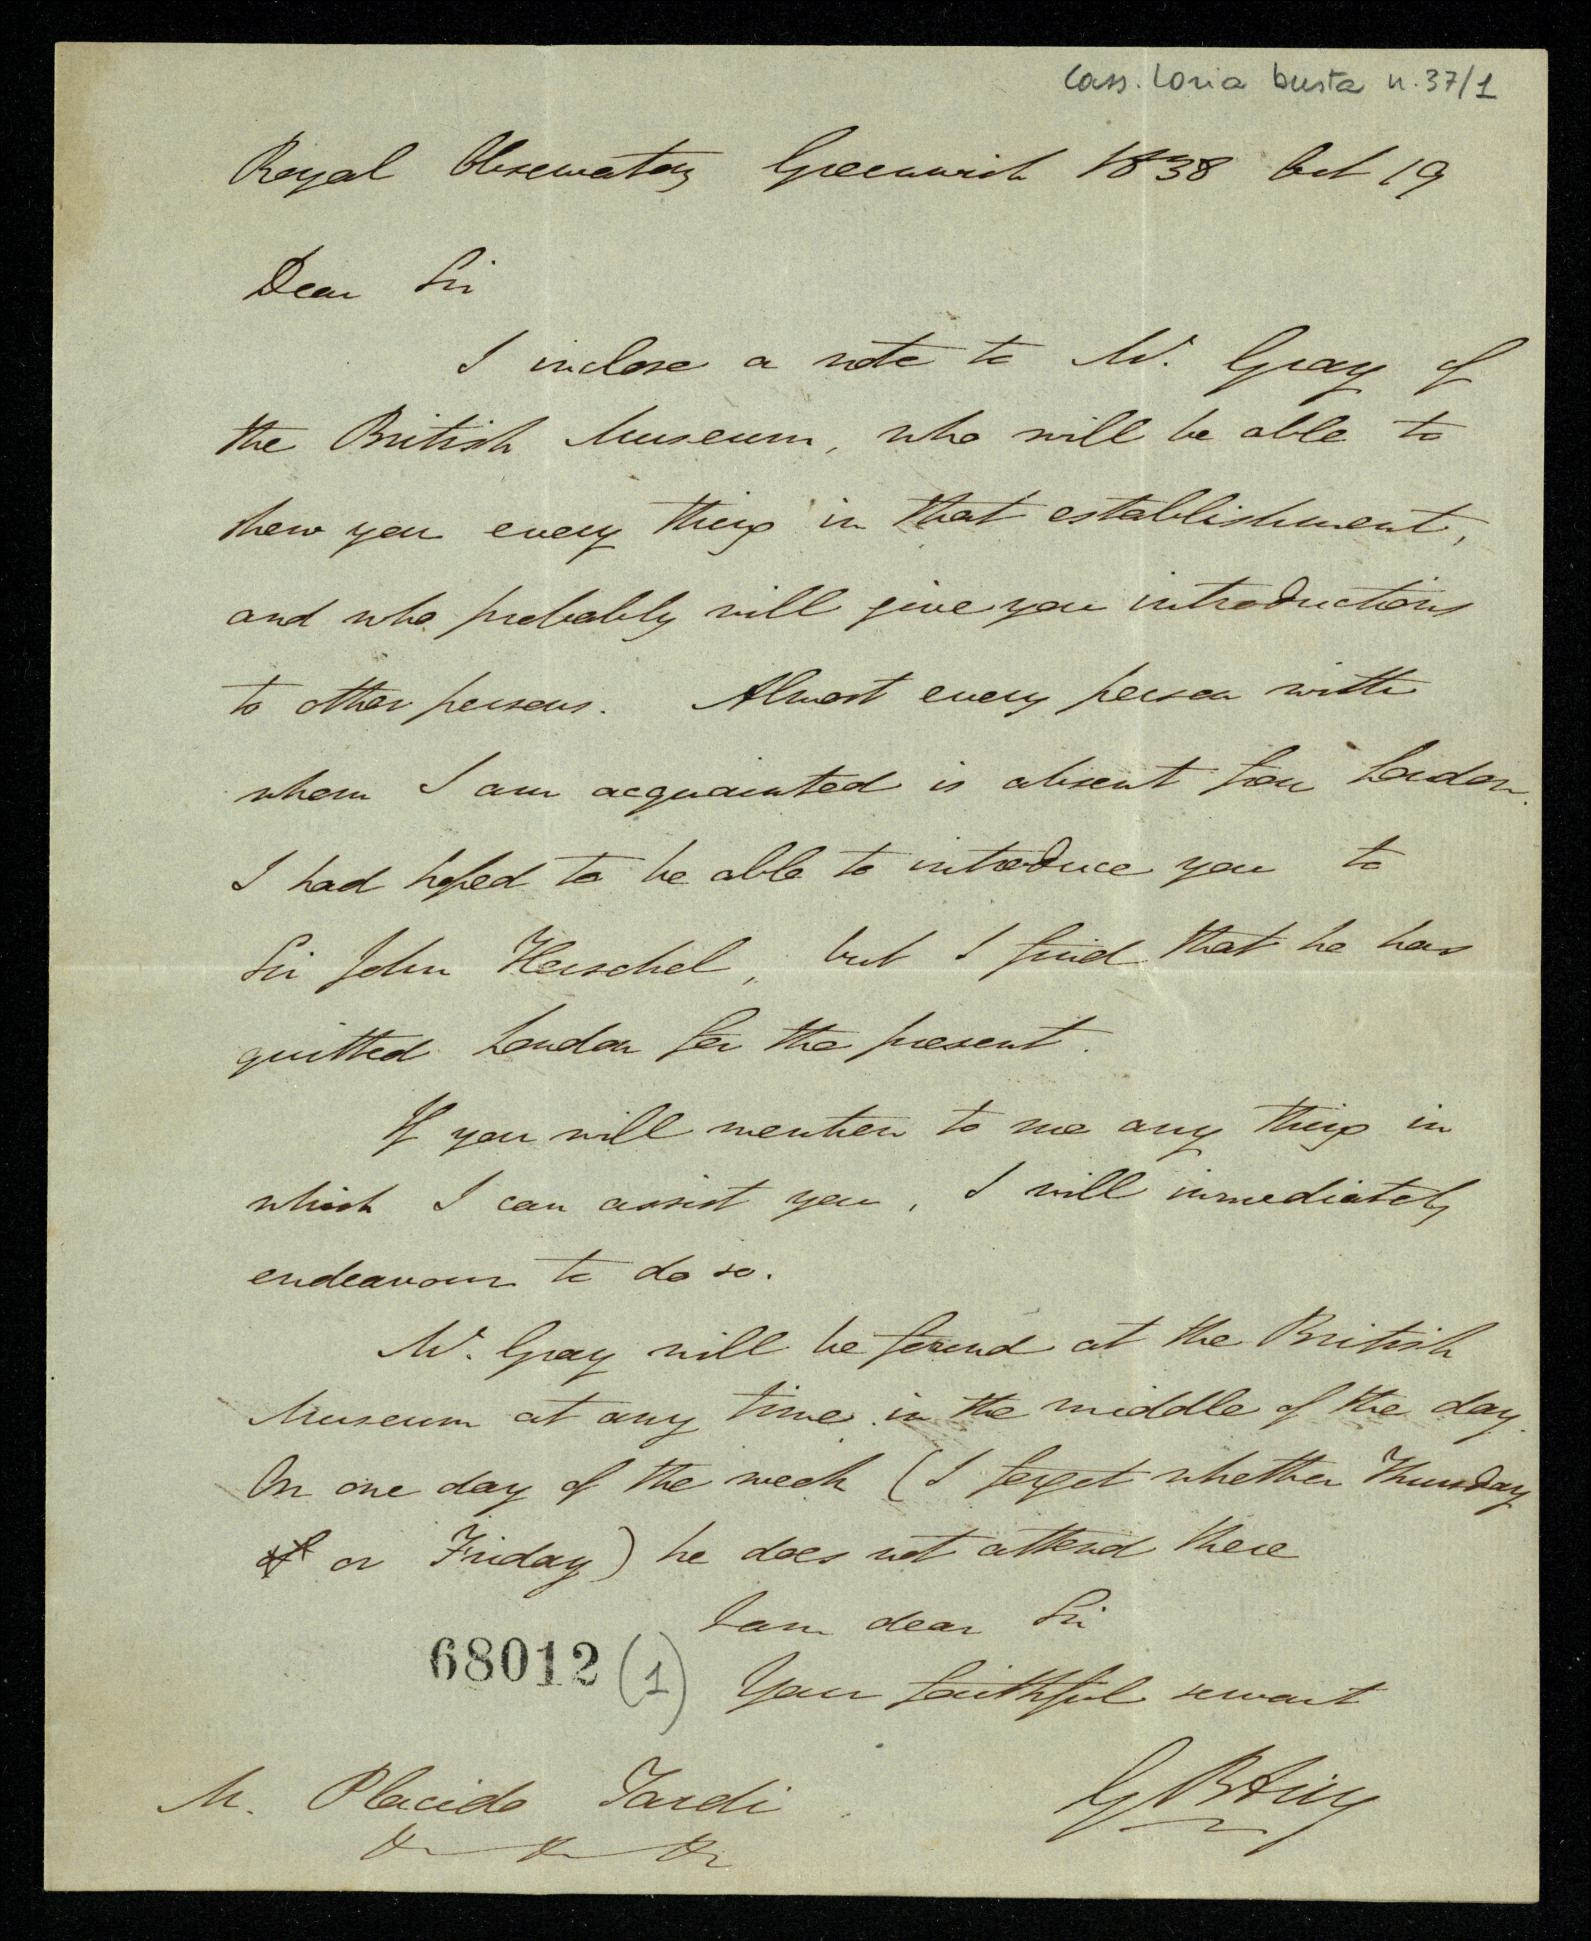 Cass. Loria busta n. 37/1
Royal Observatory Greenwich 1838 Oct 19
Dear Sir
I inclose a note to Mr. Gray of
the British Museum, who will be able to
shew you every thing in that establishment,
and who probably will give you introductions
to other persons. Almost every person with
whom I am acquainted is absent from London.
I had hoped to be able to introduce you to
Sir John Herschel, but I find that he has
quitted London for the present.
If you will mention to me any thing in
which I can assist you, I will immediately
endeavour to do so.
Mr. Gray will be found at the British
Museum at any time in the middle of the day.
On one day of the week (I forget whether Thursday
or Friday) he does not attend there
I am dear Sir
Your faithful servant
68012 (1)
G B Airy
M. Placido Tardi